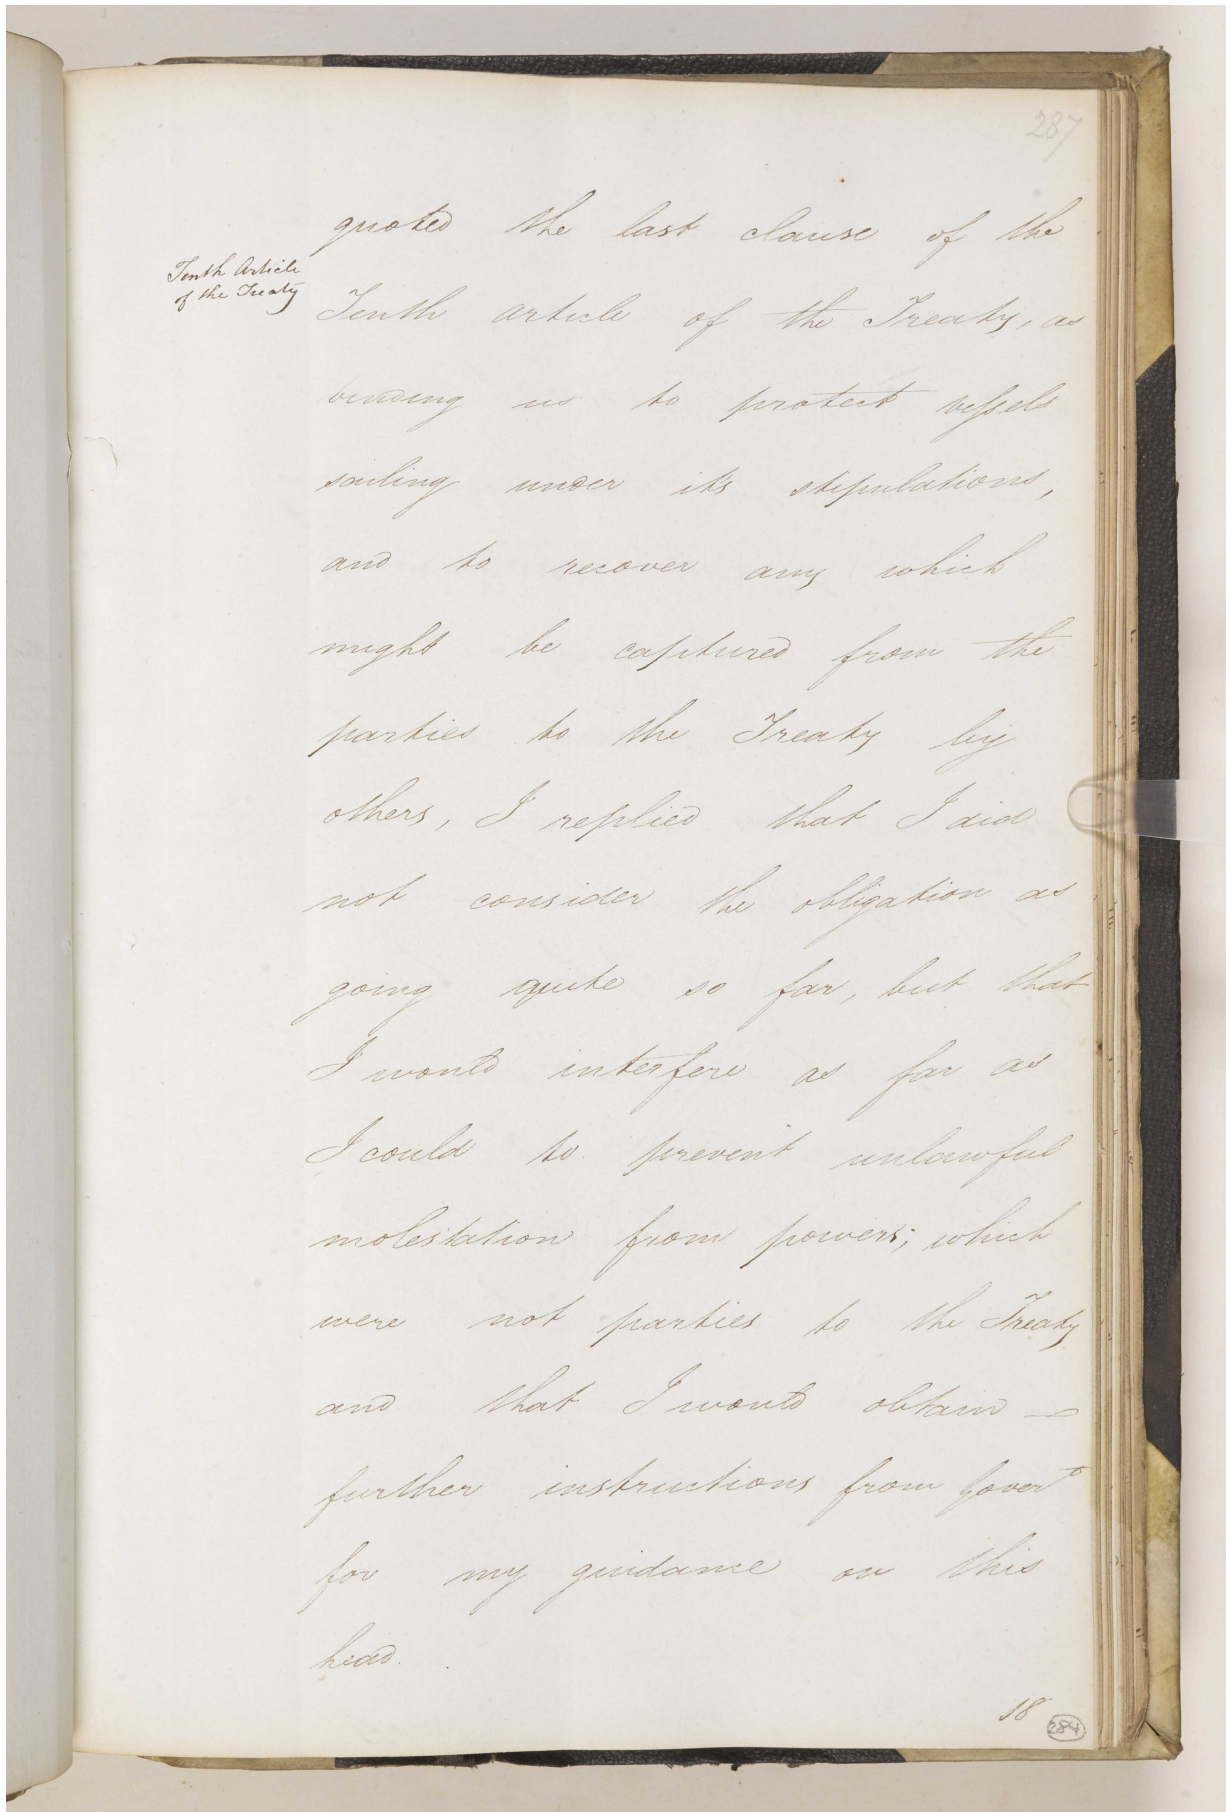 287
quoted the last clause of the
Tenth Article
of the Treaty
Tenth article of the Treaty, as
binding us to protect vessels
sailing under its stipulations,
and to recover any which
might be captured from the
parties to the Treaty by
others, I replied that I did
not consider the obligation as
going quite so far, but that
I would interfere as far as
I could to prevent unlawful
molestation from powers; which
were not parties to the Treaty
and that I would obtain —
further instructions from Govert
for my guidance on this
head.
18
284